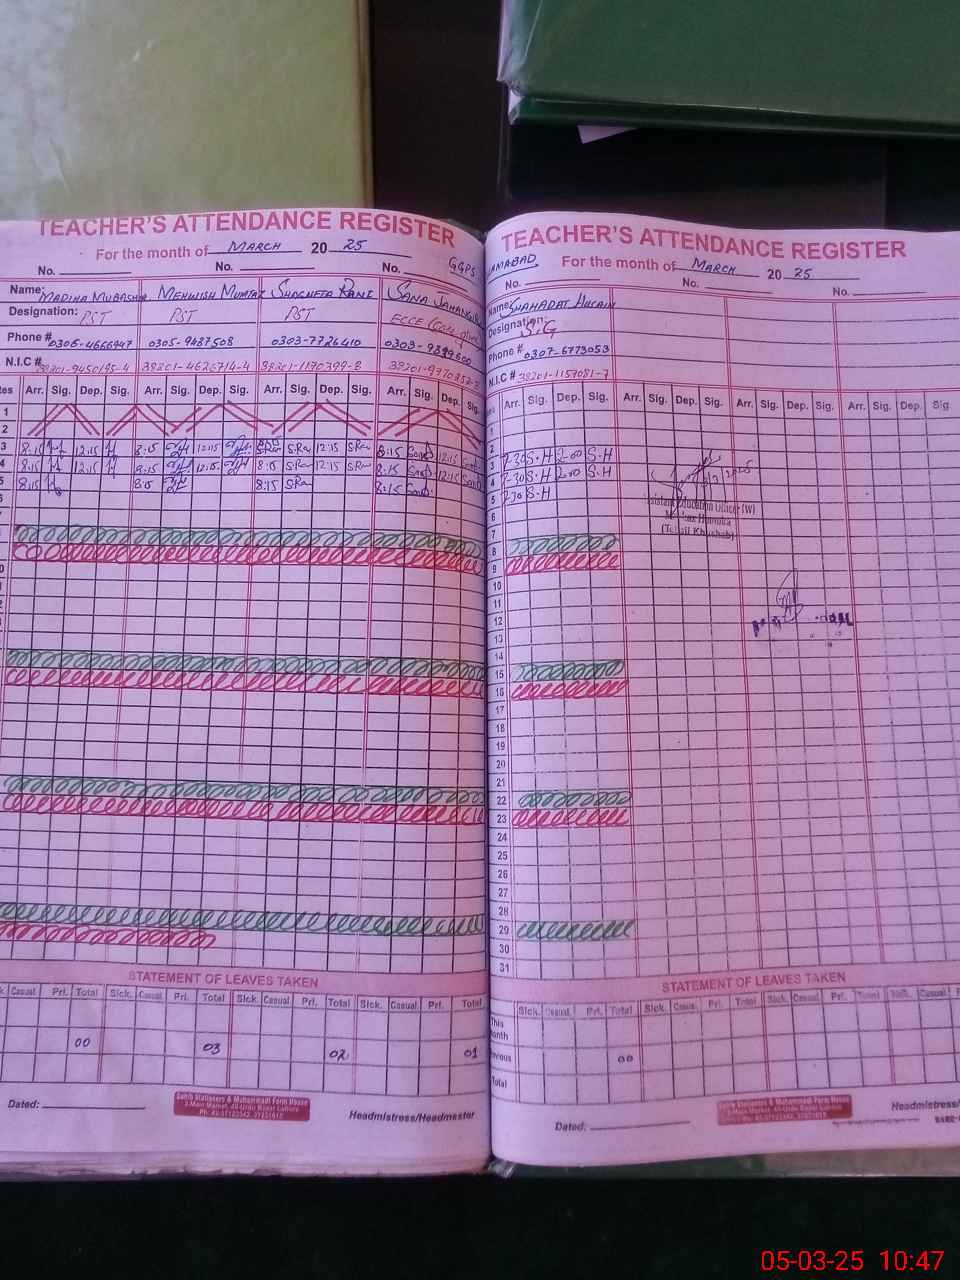 TEACHER'S ATTENDANCE REGISTER
For the month of MARCH 20 25
No. No. No. GGPS
Name: MADIHA MUBASHIR MEHWISH MUMTAZ SHAGUFTA RANI SANA JAHANGIR
Designation: PST PST PST ECCE
Phone # 0306-4666447 0305-9487508 0303-7726410
N.I.C # 38201-9450195-4 38201-4626714-4 38201-1170399-8
Arr. Sig. Dep. Sig. Arr. Sig. Dep. Sig. Arr. Sig. Dep. Sig. Arr. Sig. Dep. Sig.
1
2
3 8:15 12:15 8:15 12:15 S.Ra 12:15 S.Ra 8:15 12:15
4 8:15 12:15 8:15 12:15 8:15 S.Ra 12:15 S.Ra 8:15 12:15
5 8:15 8:15 8:15 S.Ra 8:15
STATEMENT OF LEAVES TAKEN
Sick. Casual. Pri. Total Sick. Casual. Pri. Total Sick. Casual. Pri. Total Sick. Casual. Pri. Total
00 03 02 01
Dated:
Sahib Stationers & Muhammadi Form House
2-Main Market, 40-Urdu Bazar Lahore
Headmistress/Headmester
TEACHER'S ATTENDANCE REGISTER
For the month of MARCH 20 25
No. No. No.
Name: SHAHADAT HUSAIN
Designation: S.G
Phone # 0307-6773053
N.I.C # 38201-1157081-7
Arr. Sig. Dep. Sig. Arr. Sig. Dep. Sig. Arr. Sig. Dep. Sig. Arr. Sig. Dep. Sig.
1
2
3 7-30 S.H 2-00 S.H
4 7-30 S.H 2-00 S.H
5 7-30 S.H
6
Assistant Education Officer (W)
(Tehsil Khushab)
7
8
9
10
11
12
13
14
15
16
17
18
19
20
21
22
23
24
25
26
27
28
29
30
31
STATEMENT OF LEAVES TAKEN
Sick. Casual. Pri. Total Sick. Casual. Pri. Total Sick. Casual. Pri. Total Sick. Casual. Pri.
This Month
Previous 00
Total
Dated:
Sahib Stationers & Muhammadi Form House
2-Main Market, 40-Urdu Bazar Lahore
Headmistress/
05-03-25 10:47